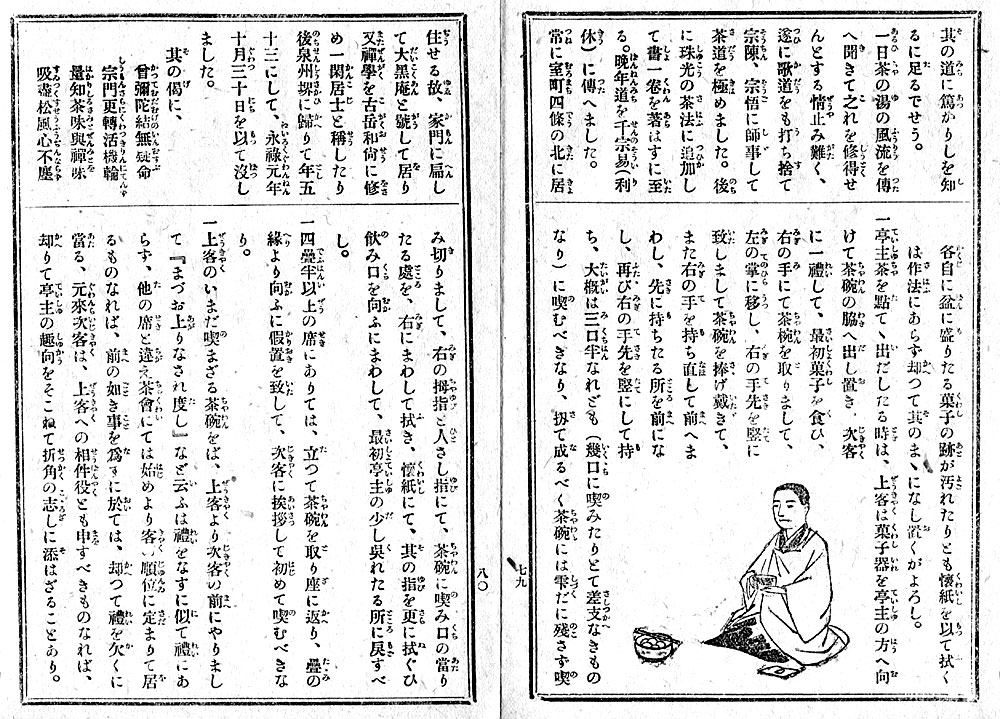 其の道に篤かりしを知
るに足るでせう。
一日茶の湯の風流を傳
へ聞きて之れを修得せ
んとする情止み難く、
遂に歌道をも打ち捨て
宗陳、宗悟に師事して
茶道を極めました。後
に珠光の茶法に追加し
て書一卷を著はすに至
る。晩年道を千宗易(利
休)に傳へました。
常に室町四條の北に居
各自に盆に盛りたる菓子の跡が汚れたりとも懷紙を以て拭く
は作法にあらず却つて其のまゝになし置くがよろし。
一亭主茶を點てゝ出だしたる時は、上客は菓子器を亭主の方へ向
けて茶碗の脇へ出し置き 次客
に一禮して、最初菓子を食ひ、
右の手にて茶碗を取りまして、
左の掌に移し、右の手先を竪に
致しまして茶碗を捧げ戴きて、
また右の手を持ち直して前へま
わし、先に持ちたる所を前にな
し、再び右の手先を竪にして持
ち、大概は三口半なれども(幾口に喫みたりとて差支なきもの
なり)に喫むべきなり、扨て成るべく茶碗には雫だに殘さず喫
七九
住せる故、家門に扁し
て大黑庵と號して居り
又禪學を古岳和尙に修
め一閑居士と稱したり
後泉州堺に歸りて年五
十三にして、永祿元年
十月三十日を以て沒し
ました。
其の偈に、
曾彌陀結無碍命
宗門更轉活機輪
量知茶味與禪味
吸盡松風心不塵
み切りまして、右の拇指と人さし指にて、茶碗に喫み口の當り
たる處を、右にまわして拭き、懷紙にて、其の指を更に拭ぐひ
飲み口を向ふにまわして、最初亭主の少し吳れたる所に戾すべ
し。
一四疊半以上の席にありては、立つて茶碗を取り座に返り、疊の
緣より向ふに假置を致して、次客に挨拶して初めて喫むべきな
り。
一上客のいまだ喫まざる茶碗をば、上客より次客の前にやりまし
て『まづお上りなされ度し』など云ふは禮をなすに似て禮にあ
らず、他の席と違え茶會にては始めより客の順位に定まりて居
るものなれば、前の如き事を爲すに於ては、却つて禮を欠くに
當る、元來次客は、上客への相伴役とも申すべきものなれば、
却りて亭主の趣向をそこねて折角の志しに添はざることあり。
八〇